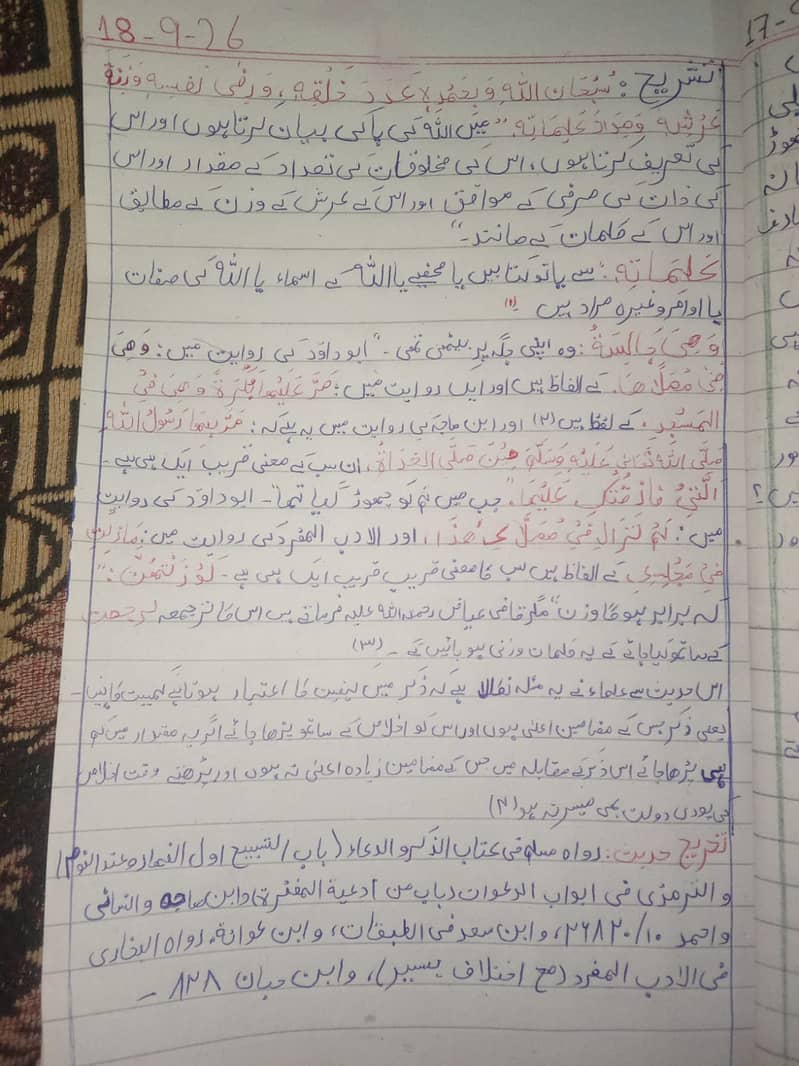 18-9-26
تشریح: سُبْحَانَ اللّٰهِ وَبِحَمْدِهٖ عَدَدَ خَلْقِهٖ، وَرِضٰی نَفْسِهٖ وَزِنَةَ
عَرْشِهٖ وَمِدَادَ کَلِمَاتِهٖ۔" میں اللہ کی پاکی بیان کرتا ہوں اور اس
کی تعریف کرتا ہوں، اس کی مخلوقات کی تعداد کے مقدار اور اس
کی ذات کی مرضی کے موافق اور اس کے عرش کے وزن کے مطابق
اور اس کے کلمات کے مانند۔"
کَلِمَاتِهٖ: سے یا تو کتابیں یا صحیفے یا اللہ کے اسماء یا اللہ کی صفات
یا اوامر وغیرہ مراد ہیں (۱)
وَهِیَ جَالِسَةٌ: وہ اپنی جگہ پر بیٹھی تھی۔ "ابو داؤد کی روایت میں: وَهِیَ
فِیْ مُصَلَّاهَا۔ کے الفاظ ہیں اور ایک روایت میں: مَرَّ عَلَیْهَا بُکْرَةً وَهِیَ فِیْ
الْمَسْجِدِ۔ کے لفظ ہیں (۲) اور ابن ماجہ کی روایت میں یہ ہے کہ: مَرَّ بِهَا رَسُوْلُ اللّٰهِ
صَلَّی اللّٰهُ تَعَالٰی عَلَیْهِ وَسَلَّمَ حِیْنَ صَلَّی الْغَدَاةَ، ان سب کے معنی قریب ایک ہی ہے۔
الَّتِیْ فَارَقْتُکِ عَلَیْهَا: جب میں تم کو چھوڑ گیا تھا۔ ابو داؤد کی روایت
میں: لَمْ تَزَالِیْ فِیْ مُصَلَّاکِ هٰذَا، اور الادب المفرد کی روایت میں: مَازِلْتِ
فِیْ مَجْلِسِکِ کے الفاظ ہیں سب کا معنی قریب قریب ایک ہی ہے۔ لَوَزَنَتْهُنَّ:"
کہ برابر ہو گا وزن" مگر قاضی عیاض رحمہ اللہ علیہ فرماتے ہیں اس کا ترجمہ لرجحت
کے ساتھ کیا جائے کہ یہ کلمات وزنی ہو جائیں گے۔ (۳)
اس حدیث سے علماء نے یہ مسئلہ نکالا ہے کہ ذکر میں کیفیت کا اعتبار ہوتا ہے کمیت کا نہیں۔
یعنی ذکر جس کے مضامین اعلیٰ ہوں اور اس کو اخلاص کے ساتھ پڑھا جائے اگرچہ مقدار میں کم
ہی پڑھا جائے اس ذکر کے مقابلہ میں جس کے مضامین زیادہ اعلیٰ نہ ہوں اور پڑھتے وقت اخلاص
کی پوری دولت بھی میسر نہ ہو (۴)
تخریج حدیث: رواه مسلم فی کتاب الذکر والدعاء (باب التسبیح اول النهار وعند النوم)
والترمذی فی ابواب الدعوات (باب من ادعیة المغفرة) وابن ماجه والنسائی
واحمد ۲۶۸۲۰/۱۰، وابن سعد فی الطبقات، وابن عوانة، رواه البخاری
فی الادب المفرد (مع اختلاف یسیر)، وابن حبان ۸۲۸۔